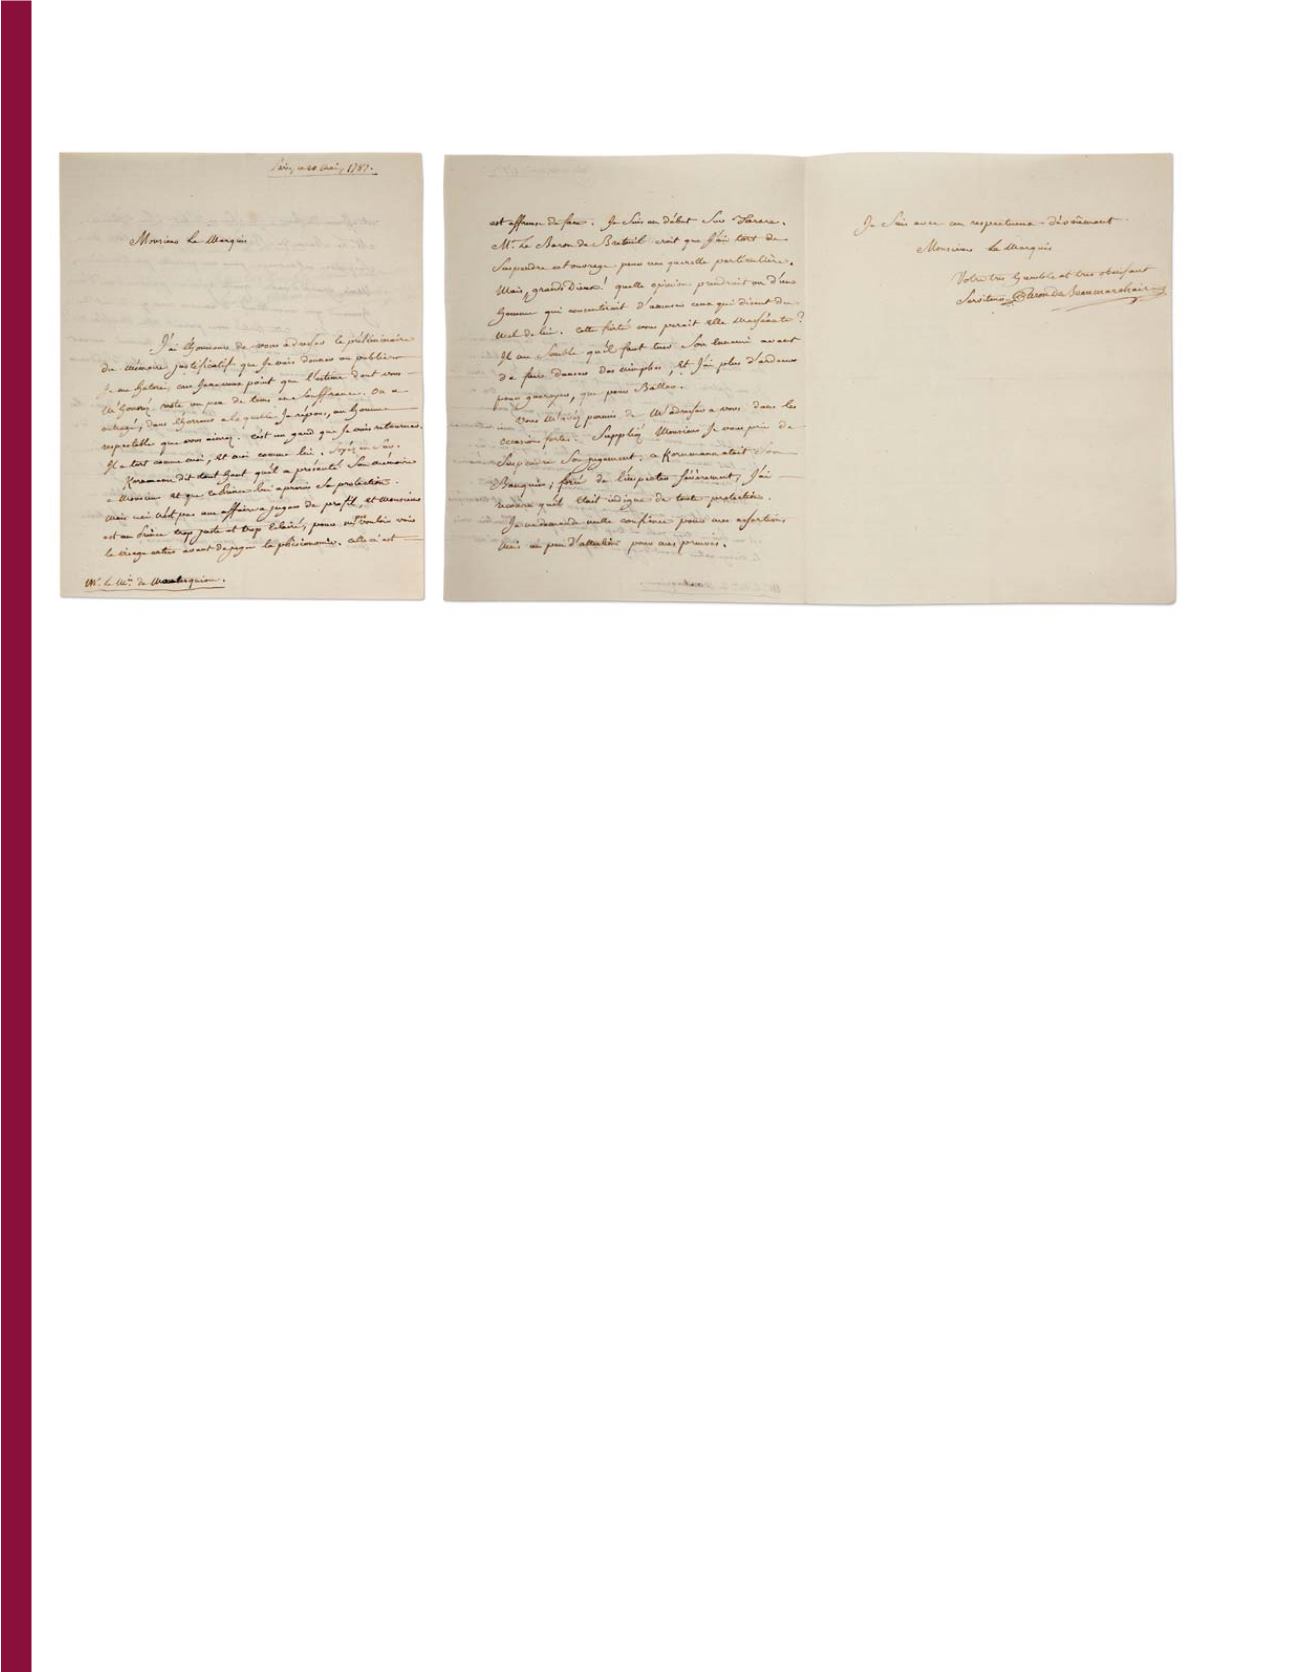 Paris, ce 20 Mai, 1787.
Monsieur Le Marquis
J'ai lhonneur de vous adresser le préliminaire
du mémoire justificatif que Je vais donner au public
Je me hâte, car Je que l'estime dont vous
M'honorez reste un peu de tems en Souffrance. On a
outragé, dans lhorreur a la quelle Je répons, un homme
respectable que vous aimez. c'est un gand que Je vais retourner.
Il a tort comme moi, et moi comme lui. Soyez en Sur.
Kornmann dit tout haut qu'il a présenté Son mémoire
a Monsieur et que ce Prince lui a promis Sa protection.
Mais ceci n'est pas une affaire a juger de profil, et Monsieur
est un Prince trop juste et trop Eclairé, pour ne pas vouloir voir
le visage entier avant de juger la phisionomie. celle ci est
Mr. le Mis. de Montesquiou.
est affreuse de face. Je Suis au début Sur Tarare.
Mr. Le Baron de Breteuil croit que J'ai tort de
Suspendre cet ouvrage pour une querelle particulière.
Mais, grands Dieux! quelle opinion prendrait on d'un
homme qui consentirait d'amuser ceux qui disent du
Mal de lui. Cette fierté vous parait elle Malséante?
Il me Semble qu'il faut tuer Son Ennemi avant
de faire danser Des nimphes, Et J'ai plus d'ardeur
pour guerroyer, que pour Baller.
Vous M'avez permis de M'adresser a vous dans les
occasions fortes. Suppliez Monsieur Je vous prie de
Suspendre Son jugement. ce Kornmann etait Son
Banquier, forcé de l'inspecter Sévèrement, J'ai
reconnu qu'il était indigne de toute protection.
Je ne demande nulle confiance pour mes assertions,
Mais un peu d'attention pour mes preuves.
Je Suis avec un respectueux dévoûment
Monsieur Le Marquis
Votre très humble et très obéissant
Serviteur Caron de Beaumarchais